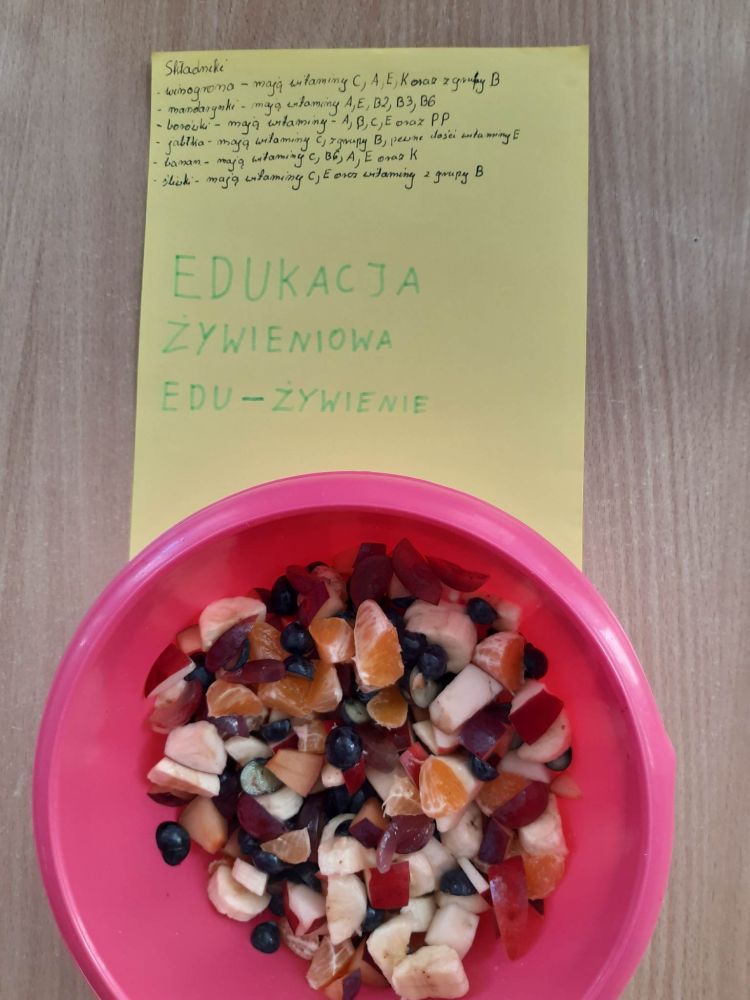 Składniki
- winogrona - mają witaminy C, A, E, K oraz z grupy B
- mandarynki - mają witaminy A, E, B2, B3, B6
- borówki - mają witaminy - A, B, C, E oraz PP
- jabłka - mają witaminy C, z grupy B, pewne ilości witaminy E
- banan - mają witaminy C, B6, A, E oraz K
- śliwki - mają witaminy C, E oraz witaminy z grupy B
EDUKACJA
ŻYWIENIOWA
EDU - ŻYWIENIE